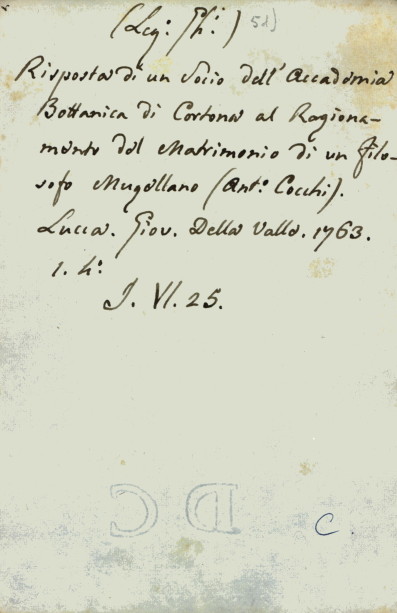 (Leg: Ph:) 51)
Risposta di un Socio dell' Accademia
Bottanica di Cortona al Ragiona-
mento del Matrimonio di un filo-
sofo Mugellano (Ant.o Cocchi).
Lucca. Giov. Della Valle. 1763.
1. 4.o
I. VI. 25.
DC
C.